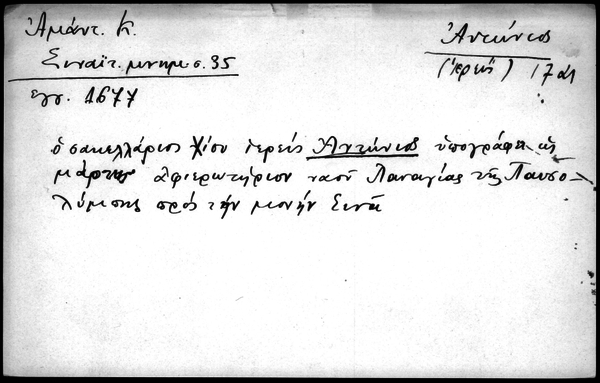 Ἀμάντ. Κ.
Σιναϊτ. μνημ. σ. 35
ἔγγ. 1677
Ἀντώνιος
(ἱερεύς) 17 αἰ
ὁ σακελλάριος Χίου ἱερεύς Ἀντώνιος ὑπογράφει ὡς
μάρτυς ἀφιερωτήριον ναοῦ Παναγίας τῆς
πρός τήν μονήν Σινᾶ